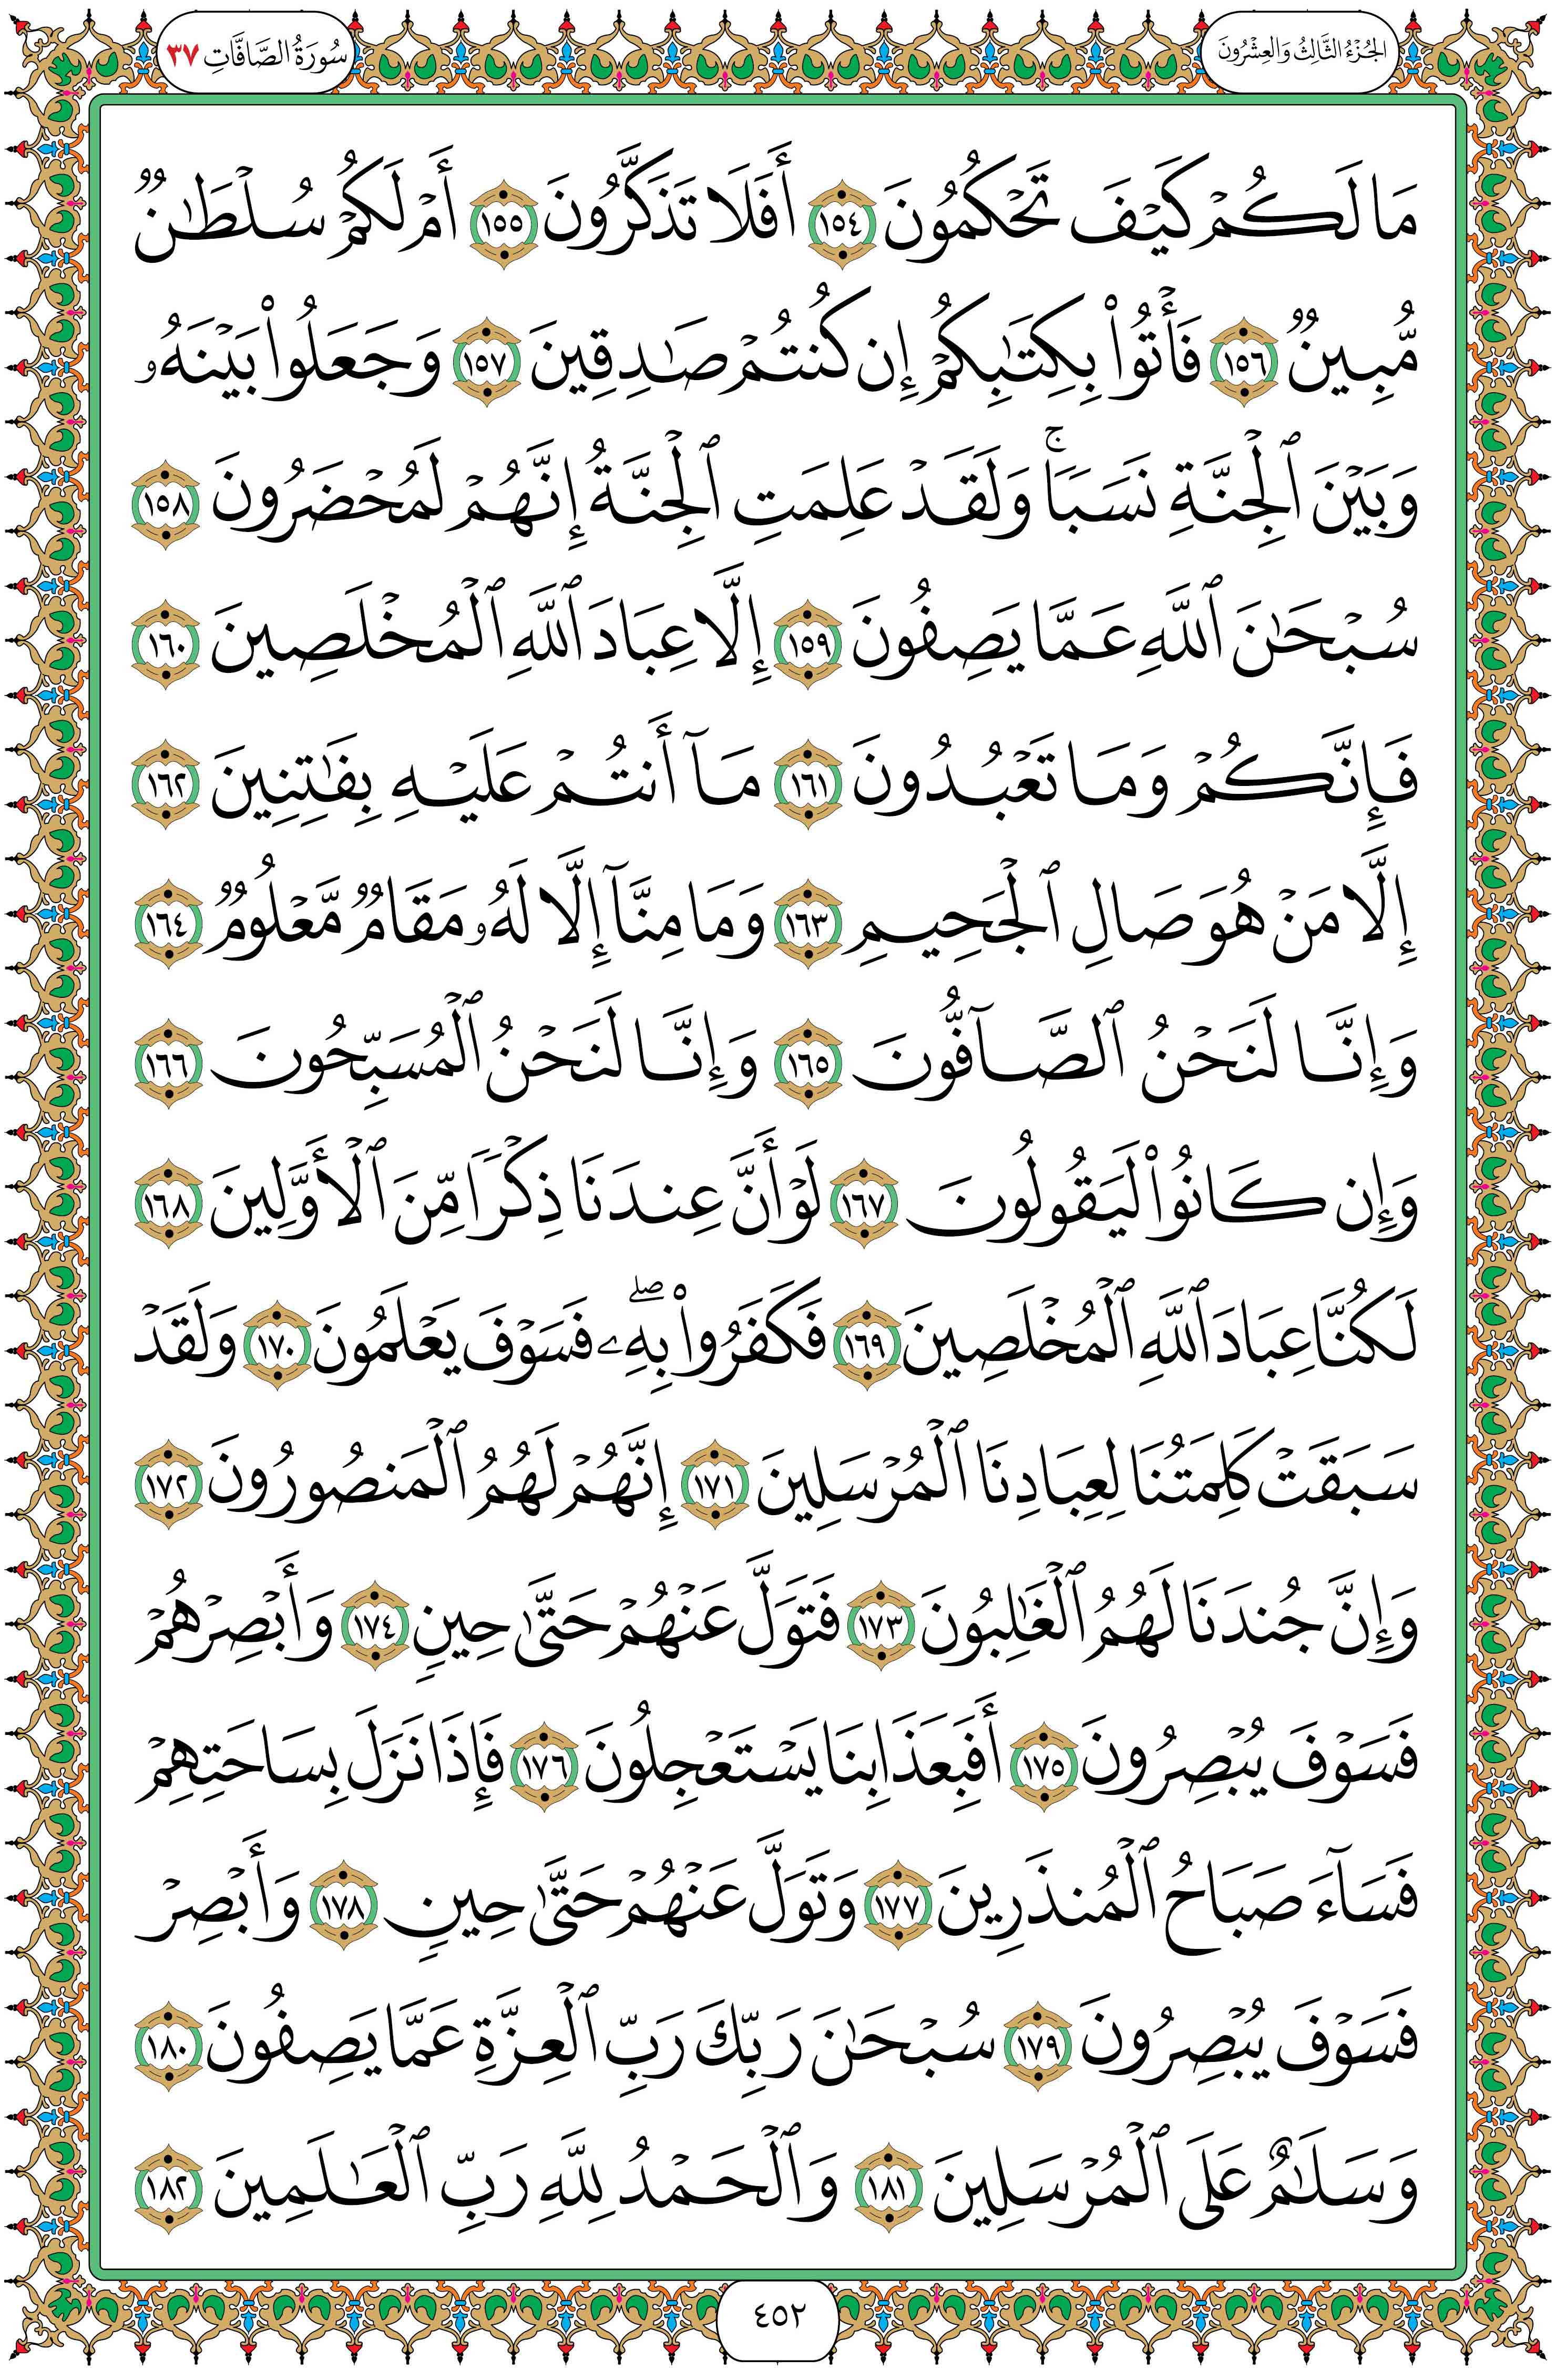 الجُزْءُ الثَّالِثُ وَالعِشْرُونَ
سُورَةُ الصَّافَّاتِ ٣٧
مَا لَكُمۡ كَيۡفَ تَحۡكُمُونَ ١٥٤ أَفَلَا تَذَكَّرُونَ ١٥٥ أَمۡ لَكُمۡ سُلۡطَٰنٞ
مُّبِينٞ ١٥٦ فَأۡتُواْ بِكِتَٰبِكُمۡ إِن كُنتُمۡ صَٰدِقِينَ ١٥٧ وَجَعَلُواْ بَيۡنَهُۥ
وَبَيۡنَ ٱلۡجِنَّةِ نَسَبٗاۚ وَلَقَدۡ عَلِمَتِ ٱلۡجِنَّةُ إِنَّهُمۡ لَمُحۡضَرُونَ ١٥٨
سُبۡحَٰنَ ٱللَّهِ عَمَّا يَصِفُونَ ١٥٩ إِلَّا عِبَادَ ٱللَّهِ ٱلۡمُخۡلَصِينَ ١٦٠
فَإِنَّكُمۡ وَمَا تَعۡبُدُونَ ١٦١ مَآ أَنتُمۡ عَلَيۡهِ بِفَٰتِنِينَ ١٦٢
إِلَّا مَنۡ هُوَ صَالِ ٱلۡجَحِيمِ ١٦٣ وَمَا مِنَّآ إِلَّا لَهُۥ مَقَامٞ مَّعۡلُومٞ ١٦٤
وَإِنَّا لَنَحۡنُ ٱلصَّآفُّونَ ١٦٥ وَإِنَّا لَنَحۡنُ ٱلۡمُسَبِّحُونَ ١٦٦
وَإِن كَانُواْ لَيَقُولُونَ ١٦٧ لَوۡ أَنَّ عِندَنَا ذِكۡرٗا مِّنَ ٱلۡأَوَّلِينَ ١٦٨
لَكُنَّا عِبَادَ ٱللَّهِ ٱلۡمُخۡلَصِينَ ١٦٩ فَكَفَرُواْ بِهِۦۖ فَسَوۡفَ يَعۡلَمُونَ ١٧٠ وَلَقَدۡ
سَبَقَتۡ كَلِمَتُنَا لِعِبَادِنَا ٱلۡمُرۡسَلِينَ ١٧١ إِنَّهُمۡ لَهُمُ ٱلۡمَنصُورُونَ ١٧٢
وَإِنَّ جُندَنَا لَهُمُ ٱلۡغَٰلِبُونَ ١٧٣ فَتَوَلَّ عَنۡهُمۡ حَتَّىٰ حِينٖ ١٧٤ وَأَبۡصِرۡهُمۡ
فَسَوۡفَ يُبۡصِرُونَ ١٧٥ أَفَبِعَذَابِنَا يَسۡتَعۡجِلُونَ ١٧٦ فَإِذَا نَزَلَ بِسَاحَتِهِمۡ
فَسَآءَ صَبَاحُ ٱلۡمُنذَرِينَ ١٧٧ وَتَوَلَّ عَنۡهُمۡ حَتَّىٰ حِينٖ ١٧٨ وَأَبۡصِرۡ
فَسَوۡفَ يُبۡصِرُونَ ١٧٩ سُبۡحَٰنَ رَبِّكَ رَبِّ ٱلۡعِزَّةِ عَمَّا يَصِفُونَ ١٨٠
وَسَلَٰمٌ عَلَى ٱلۡمُرۡسَلِينَ ١٨١ وَٱلۡحَمۡدُ لِلَّهِ رَبِّ ٱلۡعَٰلَمِينَ ١٨٢
٤٥٢